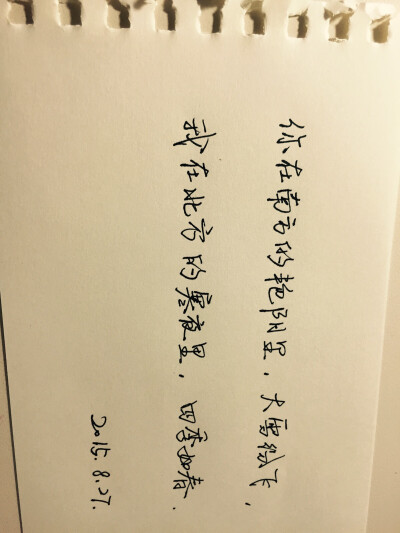 你在南方的艳阳里,大雪纷飞,
我在北方的寒夜里,四季如春.
2015.8.27.